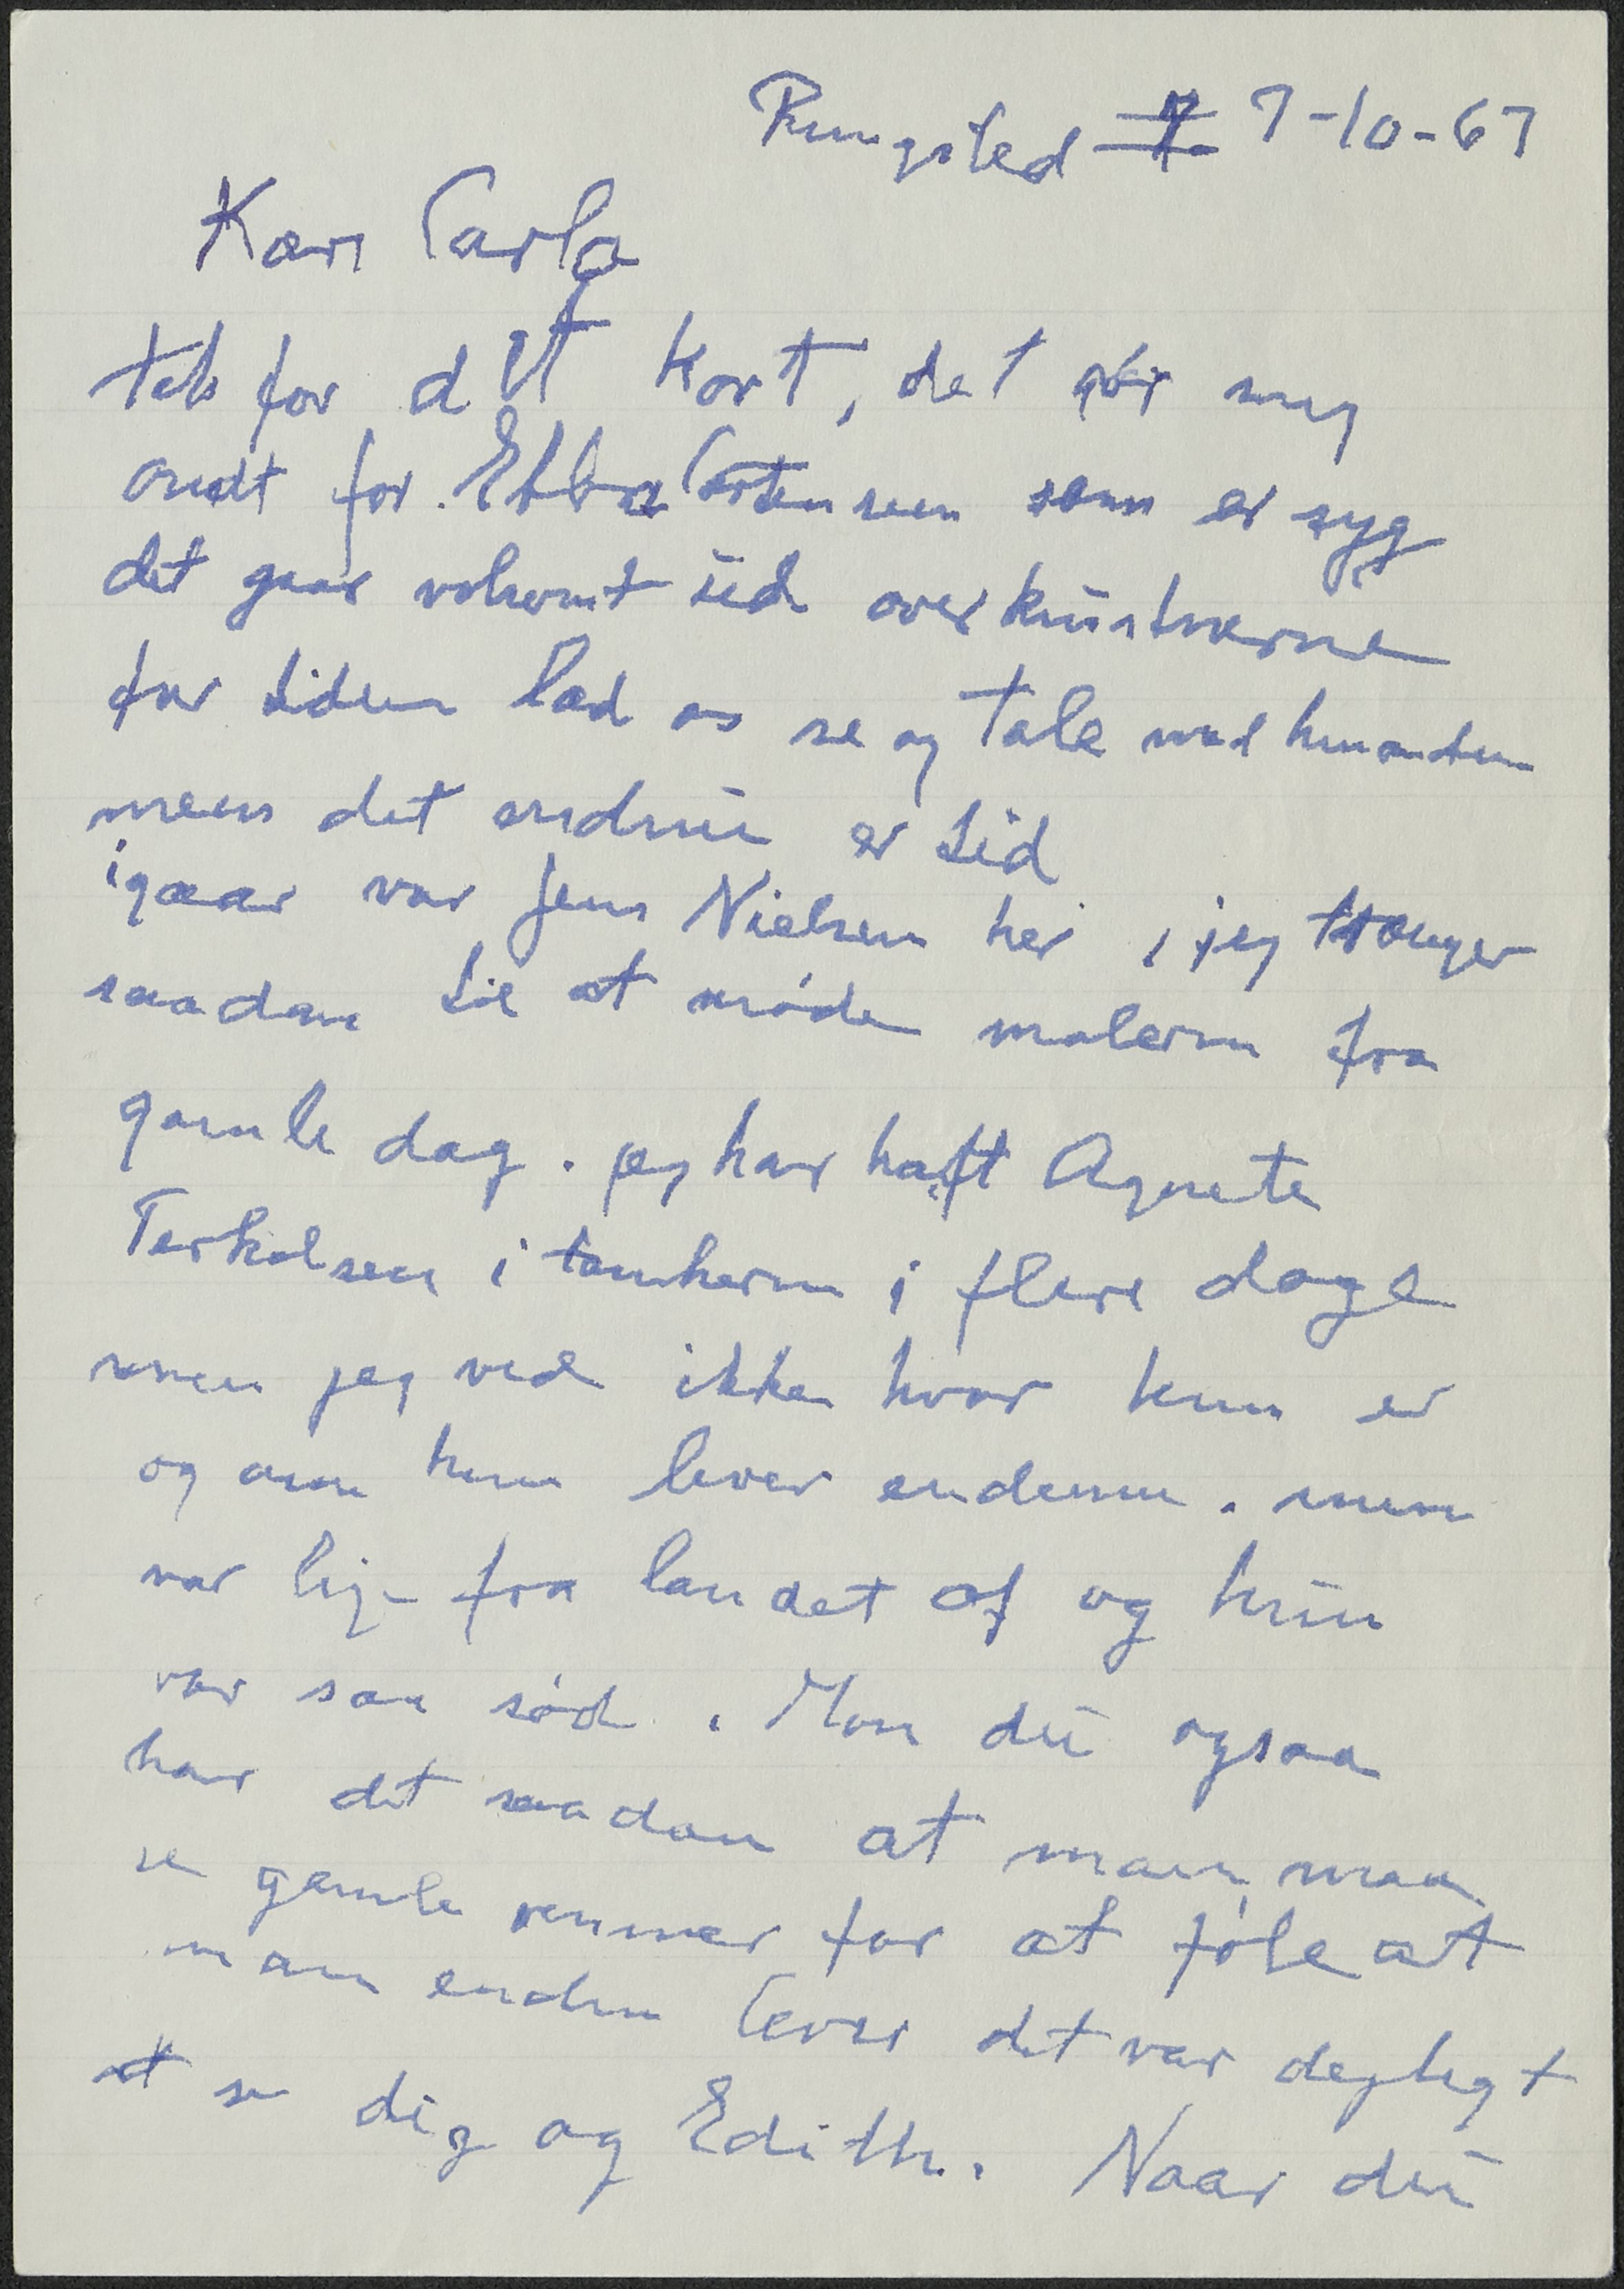 Rungsted 7-10-67
Kære Carlo
tak for dit kort, det gør mig
ondt for Ebba Carstensen som er syg
det gaar volsomt ud over kunstnerne
for tiden lad os se og tale med hinanden
mens det endnu er tid
igaar var Jens Nielsen her, jeg trænger
saadan til at møde malerne fra
gamle dag. jeg har haft Agnete
Terkelsen i tankerne i flere dage
men jeg ved ikke hvor hun er
og om hun lever endenu. 
var lige fra landet af og hun
var saa sød. Mon du ogsaa
har det saadan at man maa
se gamle venner for at føle at
man endnu lever det var dejligt
at se dig og Edith. Naar du